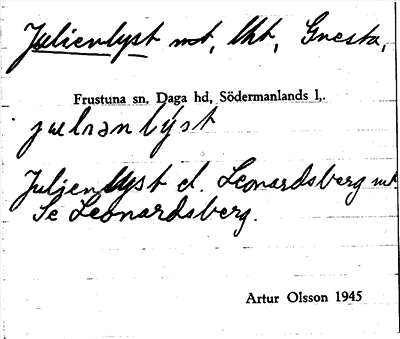 Julienlyst mt, lht, Gnesta,
Frustuna sn, Daga hd, Södermanlands l,.
julranlyst
Julienlyst el. Leonardsberg mt.
Se Leonardsberg.
Artur Olsson 1945